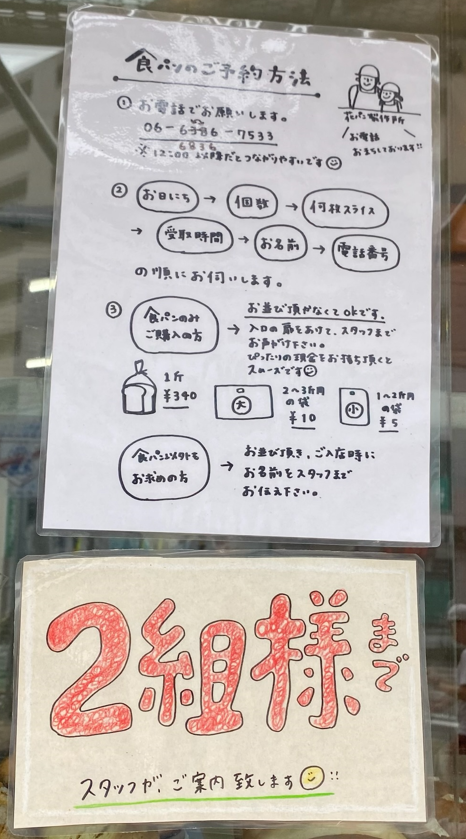 食パンのご予約方法
① お電話でお願いします。
06-6386-7533
6836
※12:00以降だとつながりやすいです
花パン製作所
お電話
おまちしております!!
② お日にち → 個数 → 何枚スライス
→ 受取時間 → お名前 → 電話番号
の順にお伺いします。
③ 食パンのみ
ご購入の方
→
お並び頂かなくてOKです。
入口の扉をあけて、スタッフまで
お声がけ下さい。
ぴったりの現金をお持ち頂くと
スムーズです
1斤
¥340
大
2~3斤用
の袋
¥10
小
1~2斤用
の袋
¥5
食パン以外も
お求めの方
→
お並び頂き、ご入店時に
お名前をスタッフまで
お伝え下さい。
2組様まで
スタッフが、ご案内致します!!